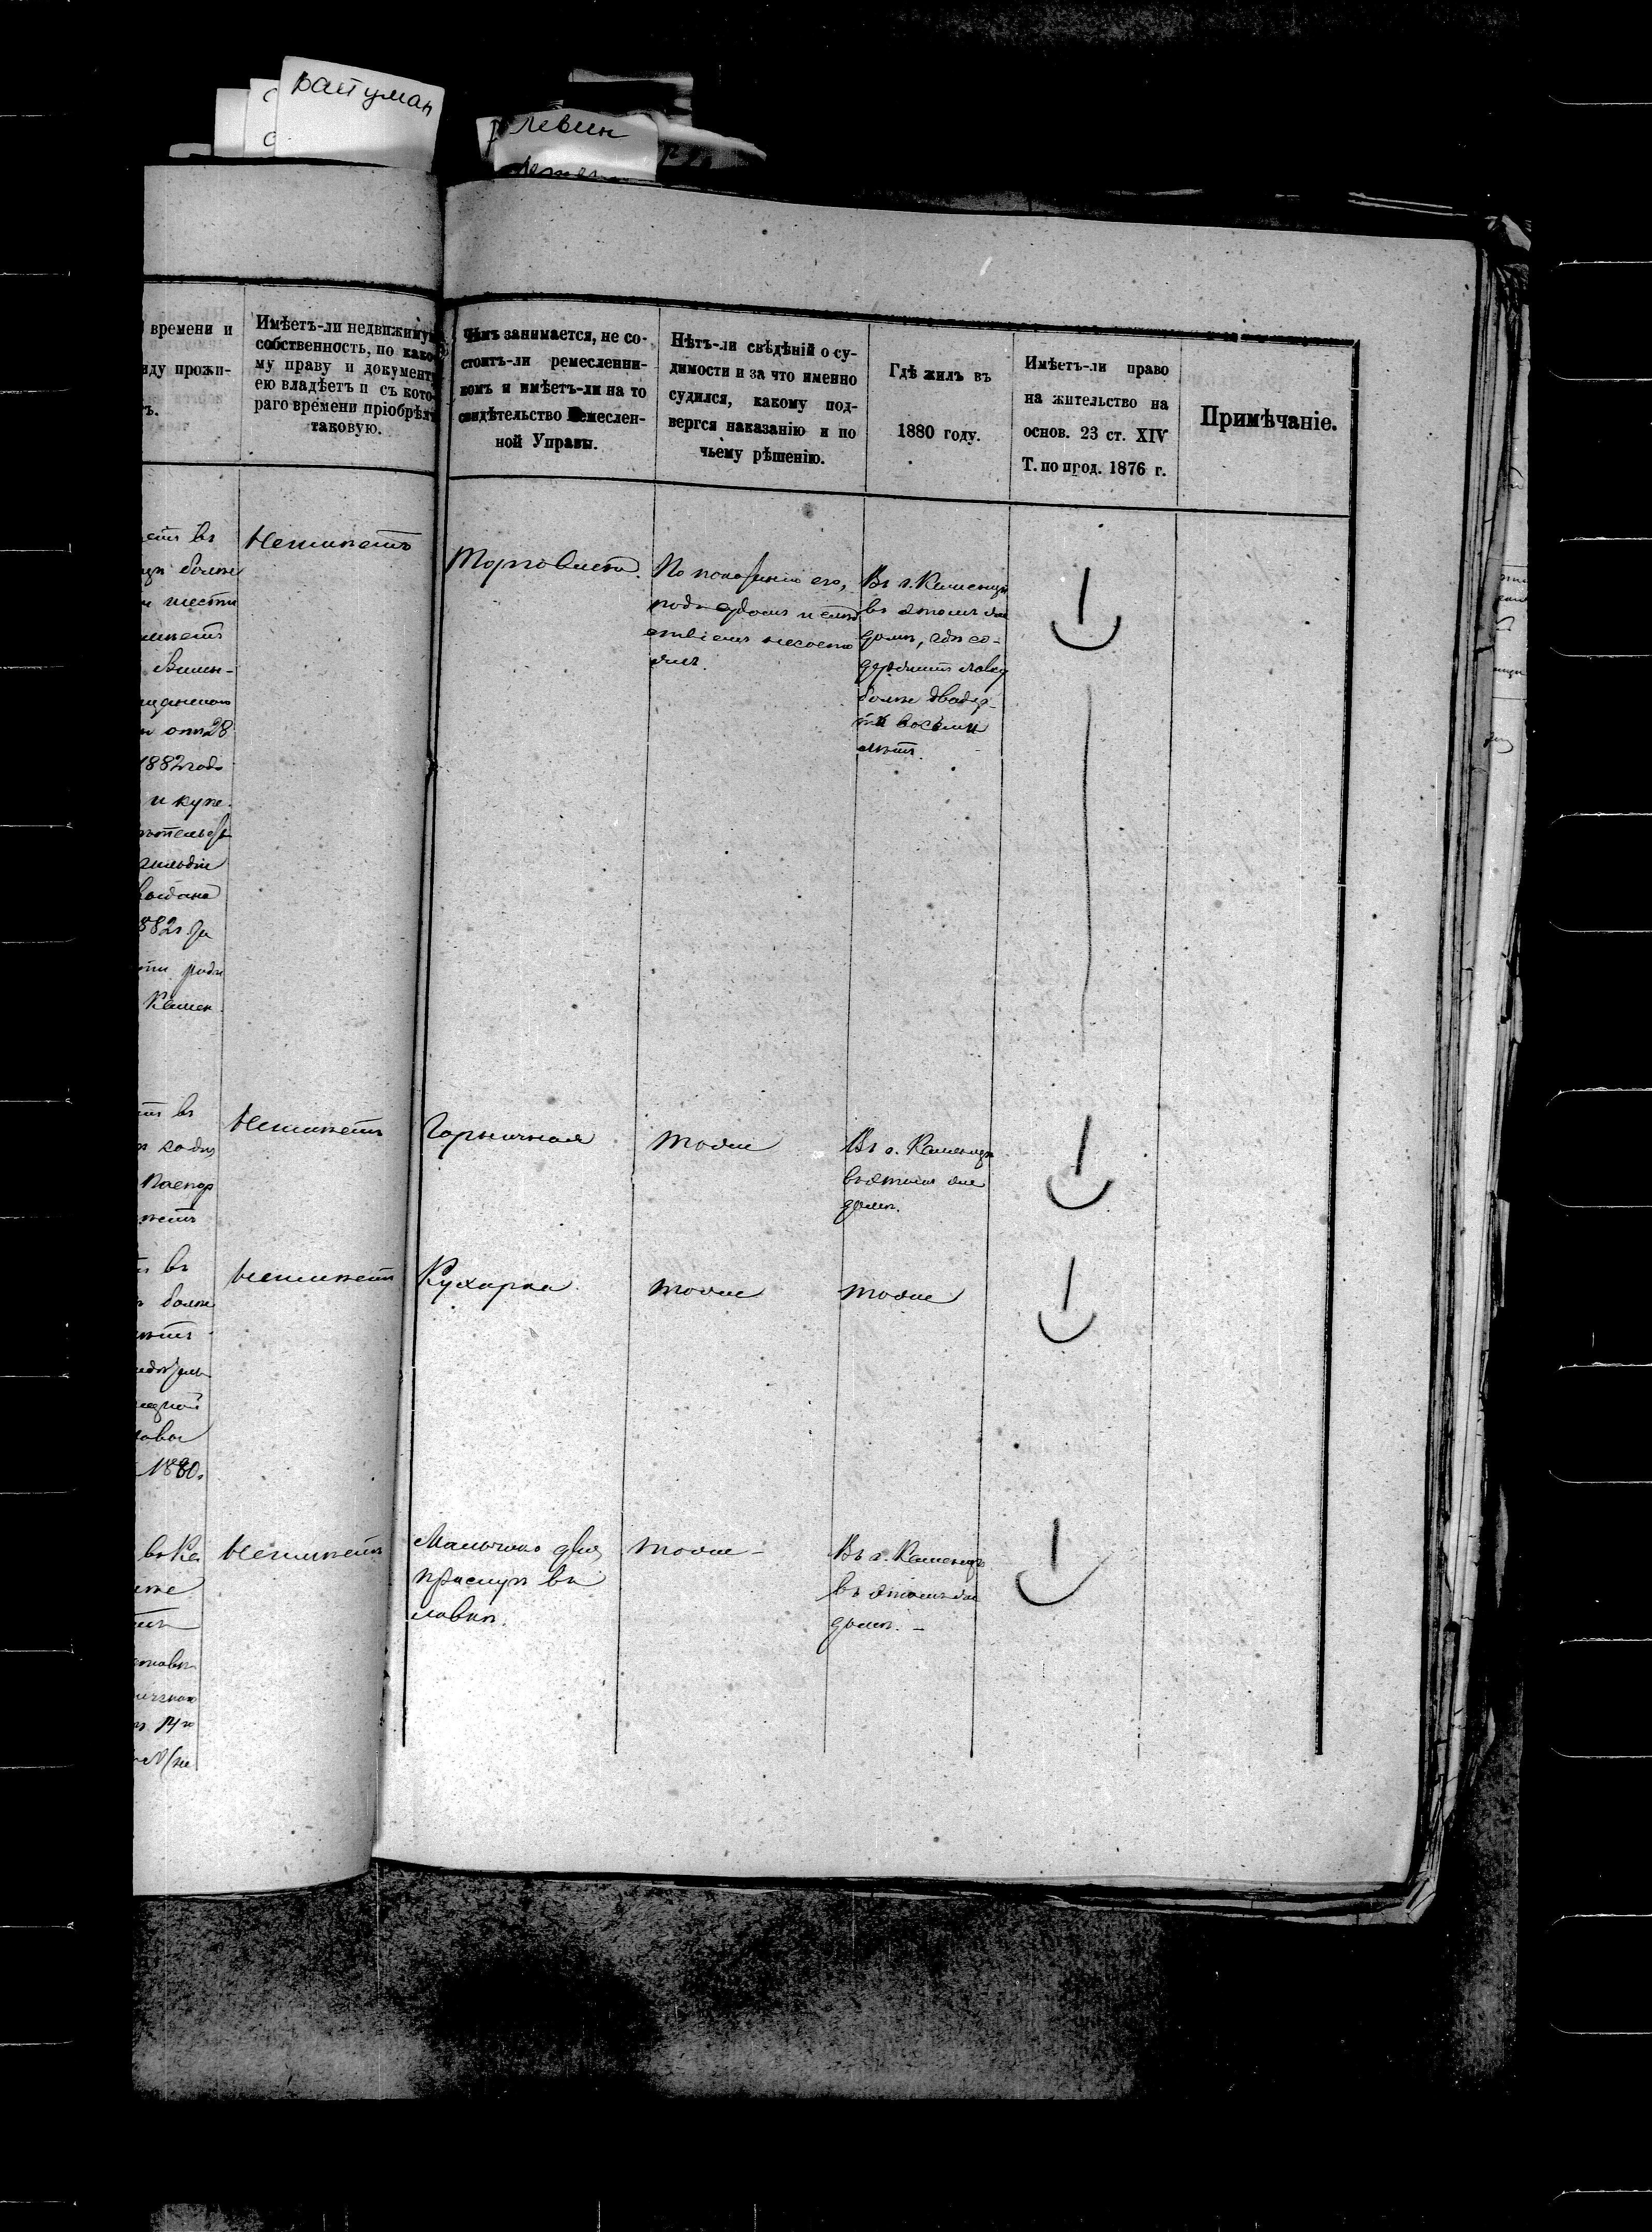 Райцман
Левин
времени и
иду прожи-
ъ.
Имѣетъ-ли недвижимую
собственность, по како-
му праву и документу
ею владѣетъ и съ кото-
раго времени пріобрѣлъ
таковую.
Чѣмъ занимается, не со-
стоитъ-ли ремесленни-
комъ и имѣетъ-ли на то
свидѣтельство Ремеслен-
ной Управы.
Нѣтъ-ли свѣдѣній о су-
димости и за что именно
судился, какому под-
вергся наказанію и по
чьему рѣшенію.
Гдѣ жилъ въ
1880 году.
Имѣетъ-ли право
на жительство на
основ. 23 ст. XIV
Т. по прод. 1876 г.
Примѣчаніе.
въ
болѣе
шести
Вилен-
28
1882 года
и купе
гильдіи
выдано
882 г. за
Камен
Неимѣетъ
Торговлею.
По показанію его,
подъ судомъ и слѣд
ствіемъ несосто
ялъ.
Въ г. Каменцѣ
въ этомъ же
домѣ, гдѣ со-
держитъ лавку
болѣе двадца-
ти восьми
лѣтъ.
въ
Паспор
Неимѣетъ
Горничная
тоже
Въ г. Каменцѣ
въ этомъ же
домѣ.
въ
болѣе
1880.
Неимѣетъ
Кухарка
тоже
тоже
въ Ка
Неимѣетъ
Мальчикъ для
прислуги въ
лавкѣ.
тоже -
Въ г. Каменцѣ
въ этомъ же
домѣ. -